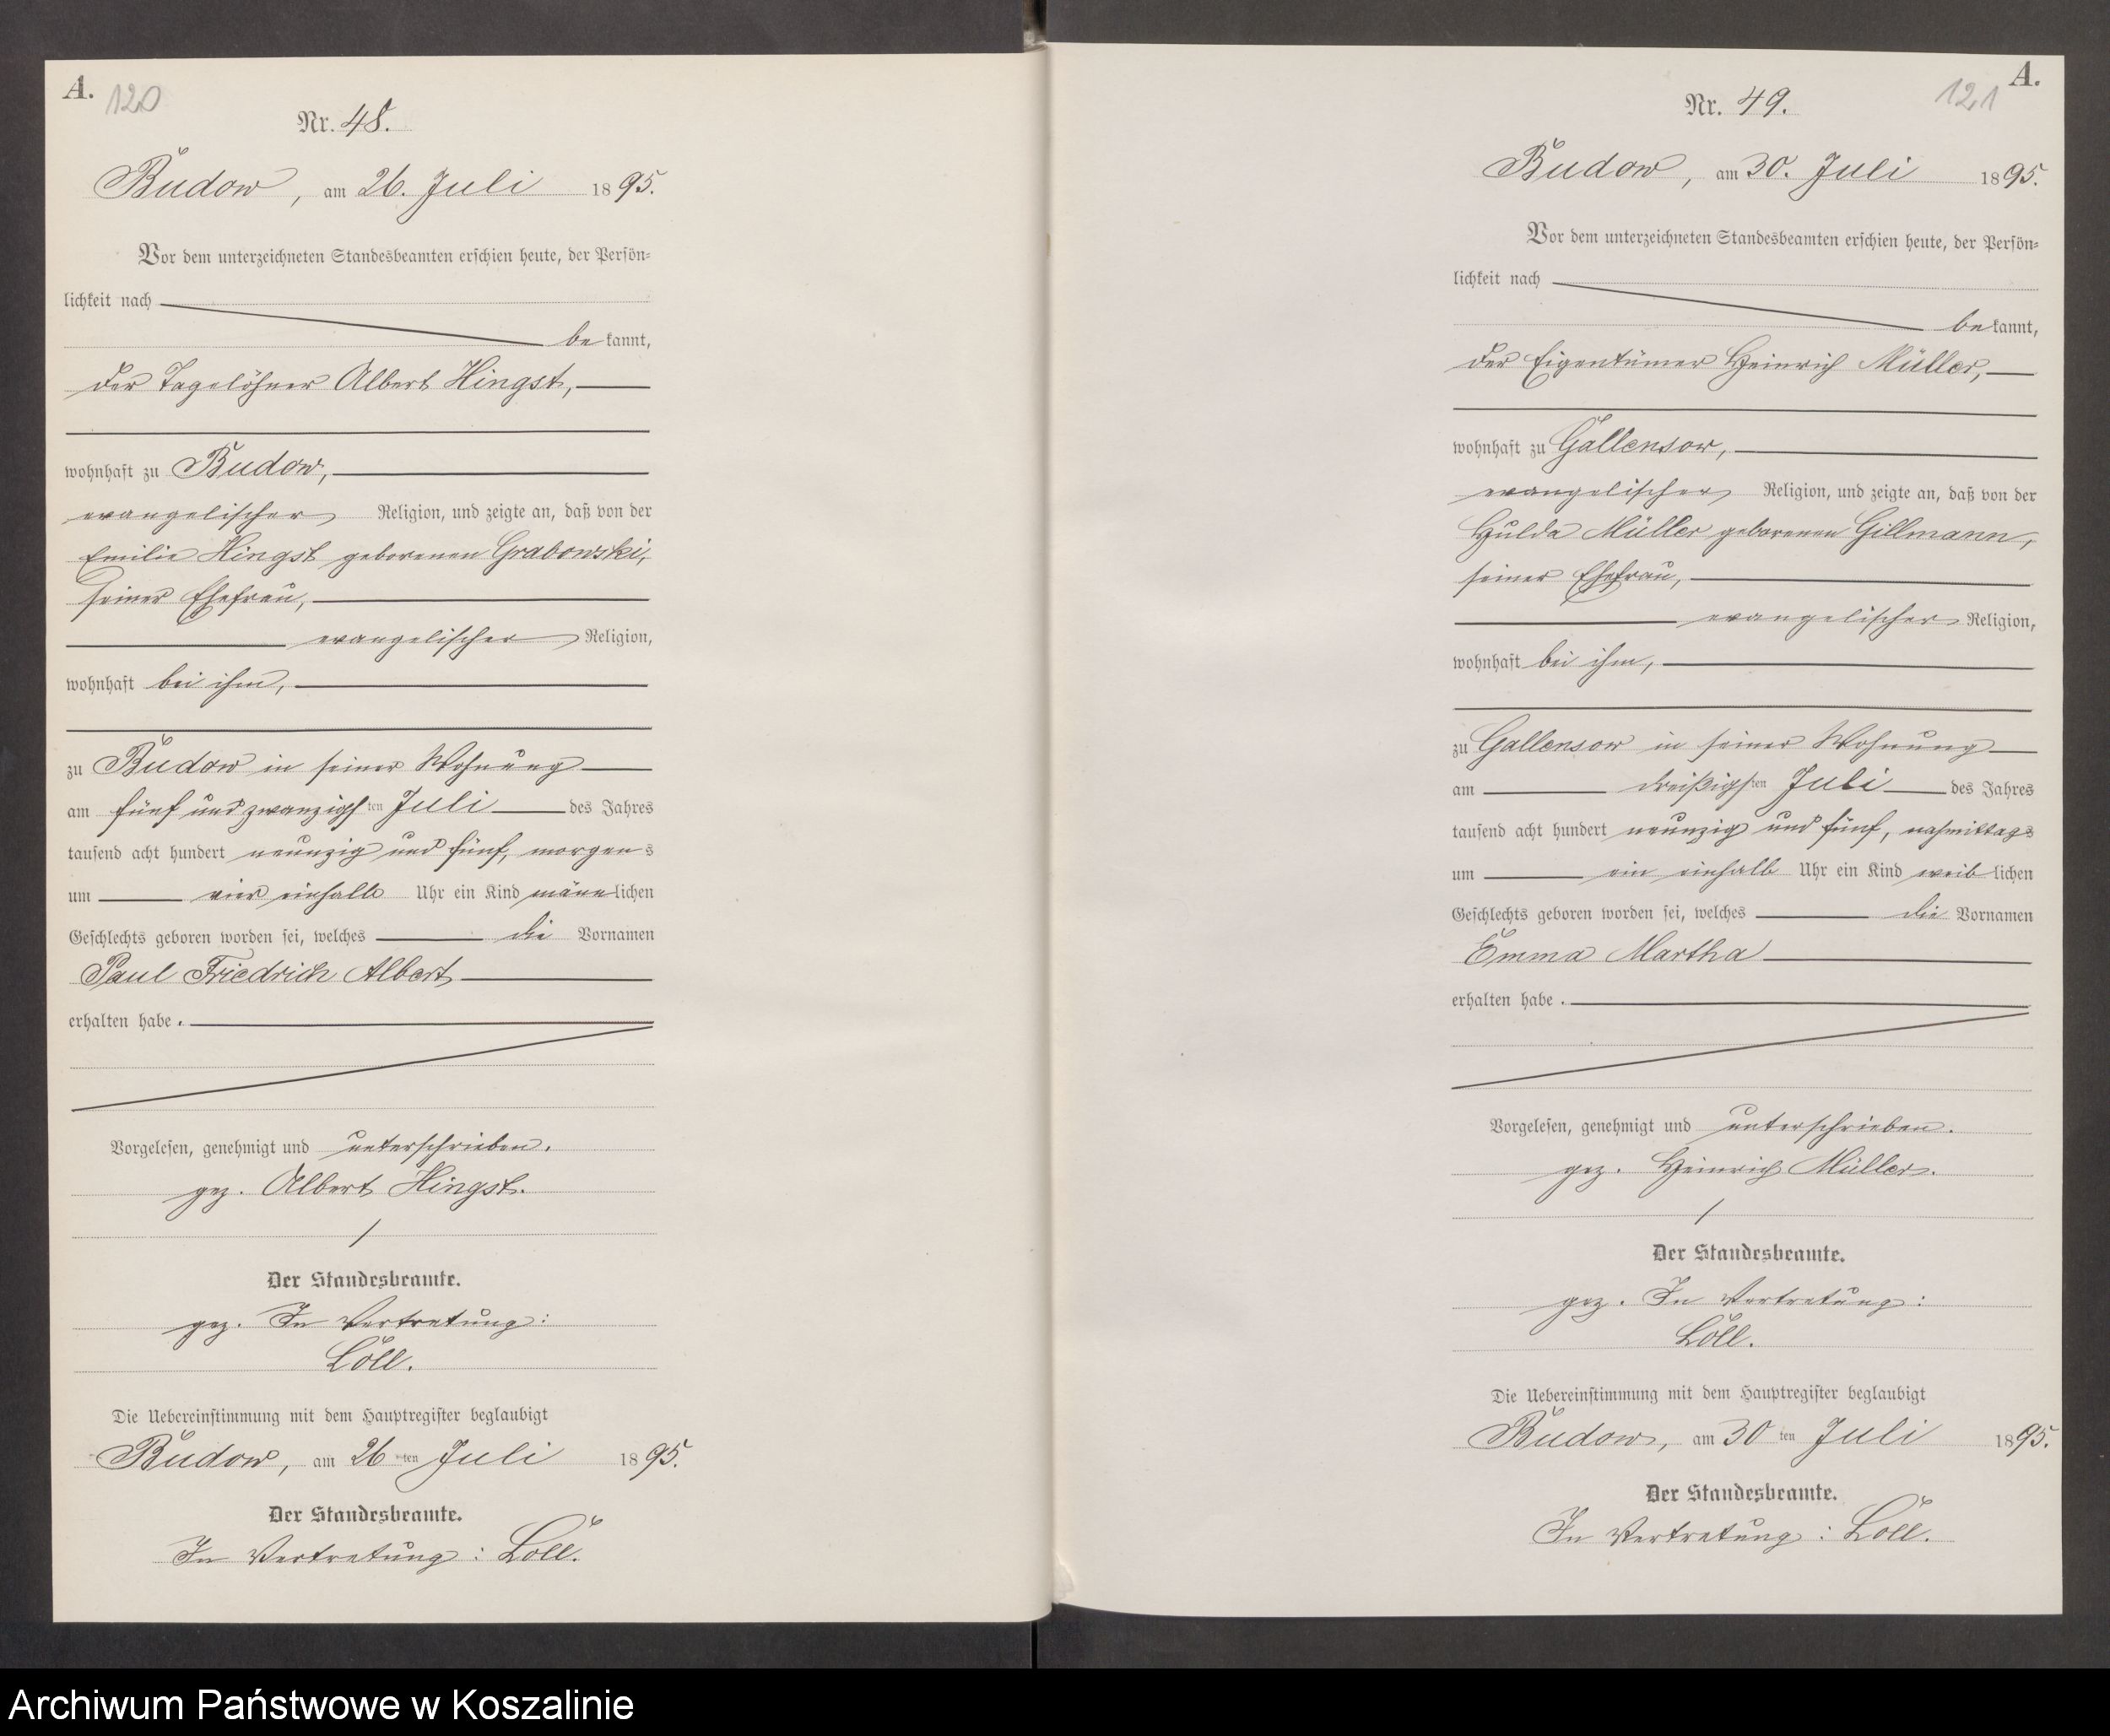 A. 120
Nr. 48.
Budow, am 26. Juli 1895.
Vor dem unterzeichneten Standesbeamten erschien heute, der Persön-
lichkeit nach
be kannt,
der Tagelöhner Albert Hingst,
wohnhaft zu Budow,
evangelischer Religion, und zeigte an, daß von der
Emilie Hingst geborenen Grabowski,
seiner Ehefrau,
evangelischer Religion,
wohnhaft bei ihm,
zu Budow in seiner Wohnung
am fünf und zwanzigsten Juli des Jahres
tausend acht hundert neunzig und fünf, morgens
um vier einhalb Uhr ein Kind männlichen
Geschlechts geboren worden sei, welches die Vornamen
Paul Friedrich Albert
erhalten habe.
Vorgelesen, genehmigt und unterschrieben.
gez. Albert Hingst.
Der Standesbeamte.
gez. In Vertretung:
Löll.
Die Uebereinstimmung mit dem Hauptregister beglaubigt
Budow, am 26 ten Juli 1895.
Der Standesbeamte.
In Vertretung: Löll.
A.
121
Nr. 49.
Budow, am 30. Juli 1895.
Vor dem unterzeichneten Standesbeamten erschien heute, der Persön-
lichkeit nach
be kannt,
der Eigentümer Heinrich Müller,
wohnhaft zu Gallensow,
evangelischer Religion, und zeigte an, daß von der
Hulda Müller geborenen Gillmann,
seiner Ehefrau,
evangelischer Religion,
wohnhaft bei ihm,
zu Gallensow in seiner Wohnung
am dreißigsten Juli des Jahres
tausend acht hundert neunzig und fünf, nachmittags
um ein einhalb Uhr ein Kind weiblichen
Geschlechts geboren worden sei, welches die Vornamen
Emma Martha
erhalten habe.
Vorgelesen, genehmigt und unterschrieben.
gez. Heinrich Müller.
Der Standesbeamte.
gez. In Vertretung:
Löll.
Die Uebereinstimmung mit dem Hauptregister beglaubigt
Budow, am 30 ten Juli 1895.
Der Standesbeamte.
In Vertretung: Löll.
Archiwum Państwowe w Koszalinie